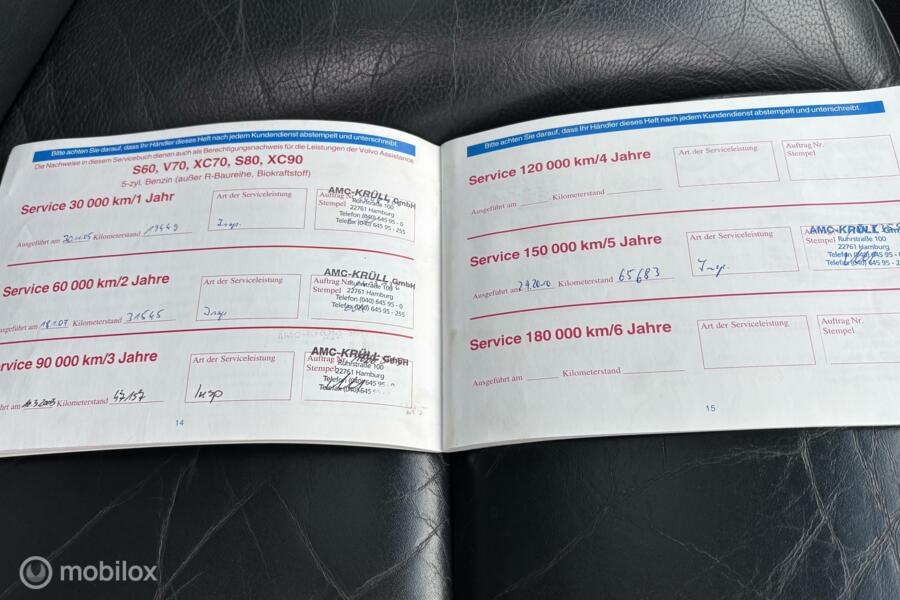 Bitte achten Sie darauf, dass Ihr Händler dieses Heft nach jedem Kundendienst abstempelt und unterschreibt.
Die Nachweise in diesem Servicebuch dienen auch als Berechtigungsnachweis für die Leistungen der Volvo Assistance
S60, V70, XC70, S80, XC90
5-zyl. Benzin (außer R-Baureihe, Biokraftstoff)
Service 30 000 km/1 Jahr
Art der Serviceleistung
Auftrag Nr.
Stempel
AMC-KRÜLL GmbH
Ruhrstraße 100
22761 Hamburg
Telefon (040) 645 95 - 0
Telefax (040) 645 95 - 255
Insp.
Ausgeführt am Kilometerstand
Service 60 000 km/2 Jahre
Art der Serviceleistung
Auftrag Nr.
Stempel
AMC-KRÜLL GmbH
Ruhrstraße 100
22761 Hamburg
Telefon (040) 645 95 - 0
Telefax (040) 645 95 - 255
Insp
Ausgeführt am Kilometerstand 31645
rvice 90 000 km/3 Jahre
Art der Serviceleistung
Auftrag Nr.
Stempel
AMC-KRÜLL GmbH
Ruhrstraße 100
22761 Hamburg
Telefon (040) 645 95 - 0
Insp
hrt am Kilometerstand 47157
14
Bitte achten Sie darauf, dass Ihr Händler dieses Heft nach jedem Kundendienst abstempelt und unterschreibt.
Service 120 000 km/4 Jahre
Art der Serviceleistung
Auftrag Nr.
Stempel
Ausgeführt am Kilometerstand
Service 150 000 km/5 Jahre
Art der Serviceleistung
Stempel
AMC-KRÜLL Gm
Ruhrstraße 100
22761 Hamburg
Telefon (040) 645 95 - 0
Telefax (040) 645 95 - 2
Insp.
Ausgeführt am Kilometerstand 65683
Service 180 000 km/6 Jahre
Art der Serviceleistung
Auftrag Nr.
Stempel
Ausgeführt am Kilometerstand
15
mobilox